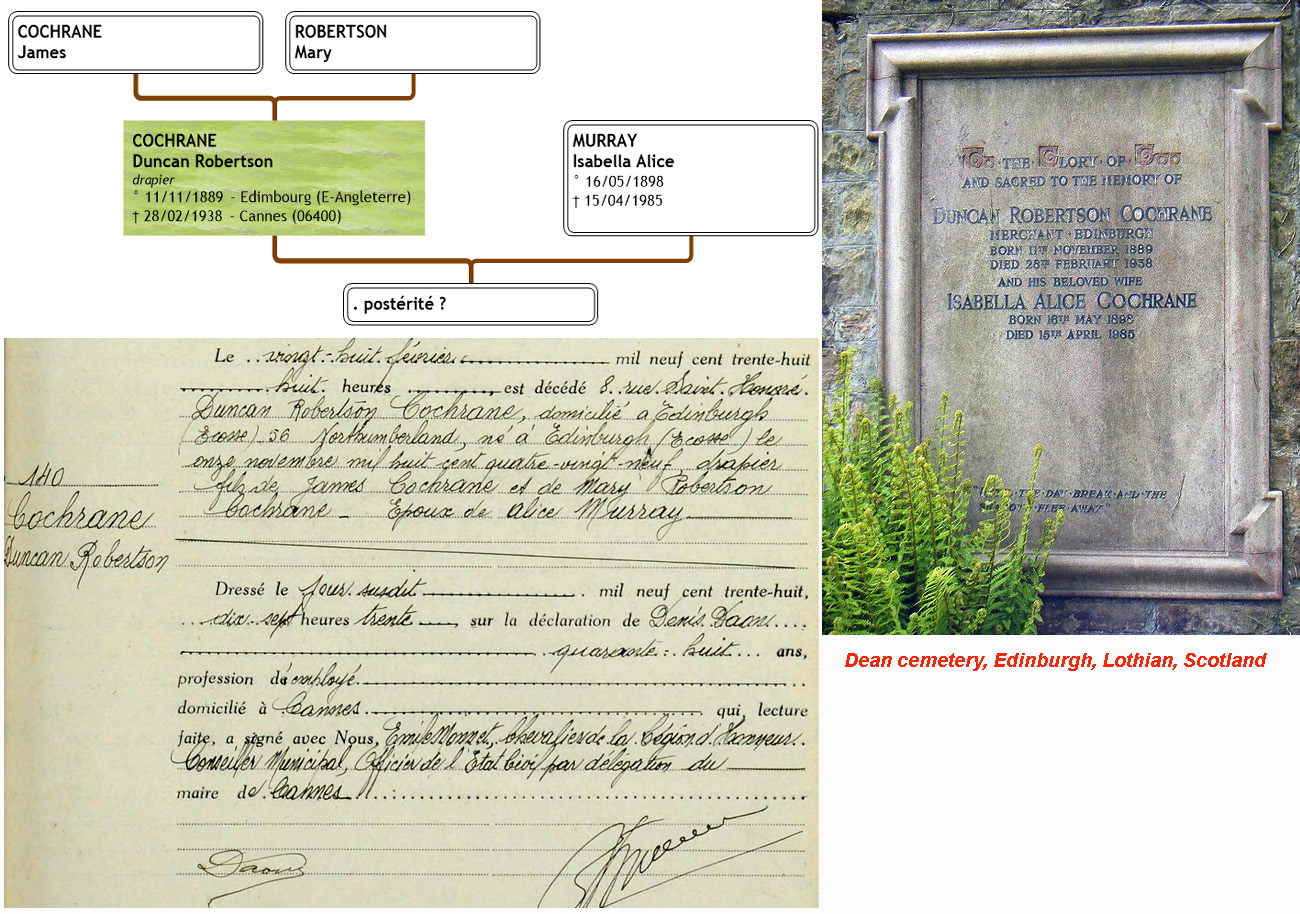 COCHRANE
James
ROBERTSON
Mary
COCHRANE
Duncan Robertson
drapier
° 11/11/1889 - Edimbourg (E-Angleterre)
† 28/02/1938 - Cannes (06400)
MURRAY
Isabella Alice
° 16/05/1898
† 15/04/1985
. postérité ?
To · the · Glory · of · God
and sacred to the memory of
Duncan Robertson Cochrane
Merchant · Edinburgh
Born 11th November 1889
Died 28th February 1938
and his beloved wife
Isabella Alice Cochrane
Born 16th May 1898
Died 15th April 1985
the day break and the
flee away"
Dean cemetery, Edinburgh, Lothian, Scotland
140
Cochrane
Duncan Robertson
Le vingt-huit février mil neuf cent trente-huit
huit heures est décédé 8 rue Saint Honoré
Duncan Robertson Cochrane, domicilié a Edinburgh
(Ecosse) 56 Northumberland, né à Edinburgh (Ecosse) le
onze novembre mil huit cent quatre-vingt-neuf, drapier
fils de James Cochrane et de Mary Robertson
Cochrane - Epoux de Alice Murray
Dressé le jour susdit mil neuf cent trente-huit,
dix-sept heures trente, sur la déclaration de Denis Daon
quarante-huit ans,
profession d'employé
domicilié à Cannes qui, lecture
faite, a signé avec Nous, Emile Monnet, Chevalier de la Légion d'Honneur.
Conseiller Municipal, Officier de l'Etat Civil par délégation du
maire de Cannes
Daon